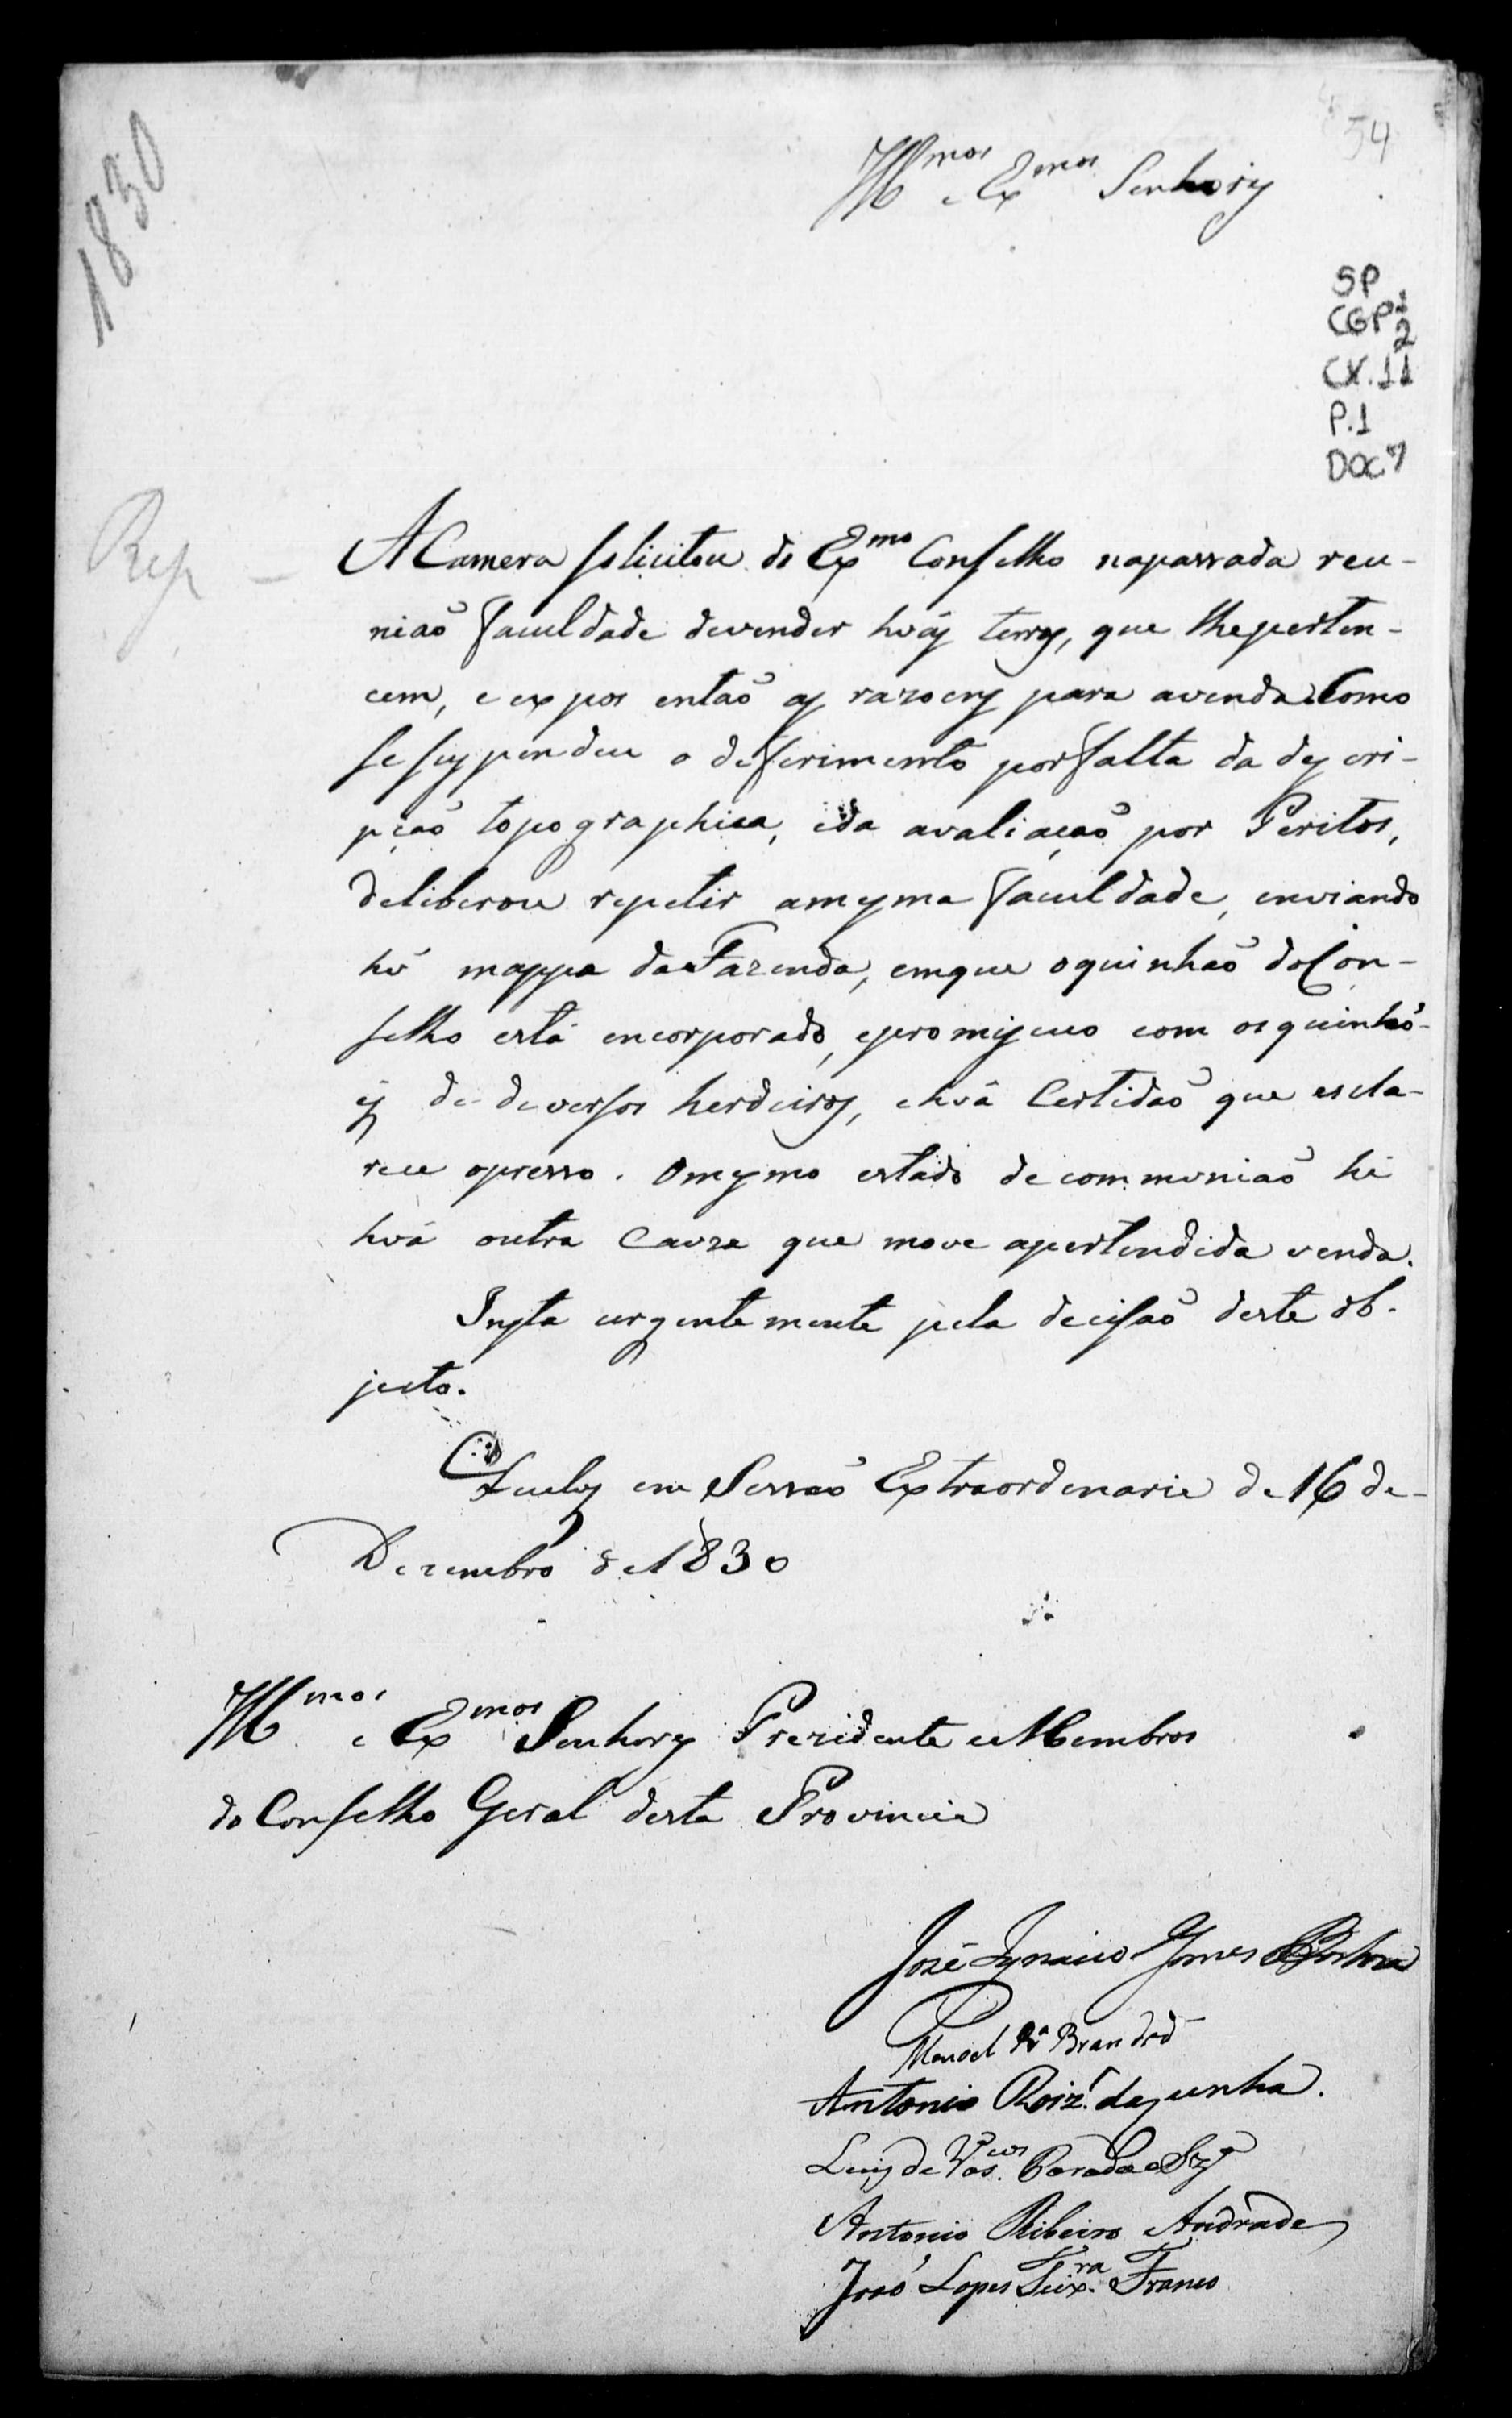 1830
54
Illmos e Exmos Senhores
SP
CGP1
2
CX.11
P.1
DOC7
Rep –
A Camera solicitou do Exmo Conselho napassada reu-
nião faculdade devender huãs terras, que lhepertin-
cem, e expos então as razoens para avenda. Como
sesuspendeu o deferimento porfalta da descri-
pção topographica, eda avaliação por Peritos,
deliberou repetir amesma faculdade, enviando
hú mappa daFazenda, emque oquinhão doCon-
selho está encorporado, epromiscuo com osquinhõ-
es de deversos herdeiros, ehuã Certidão que escla-
rece opresso. Omesmo estado decommunião hé
huã outra Cauza que move apertendida venda.
Insta urgentemente pela decisão deste ob-
jecto.
em Sessão Extraordenaria de 16 de
Dezembro de 1830
Illmos e Exmos Senhores Prezidente eMembros
do Conselho Geral desta Provincia
José Ignacio Gomes
Manoel Brandão
Antonio Roiz. da Cunha.
Luis de Vascos. Parada e Sza
Antonio Ribeiro Andrade
João Lopes Teixra. Franco